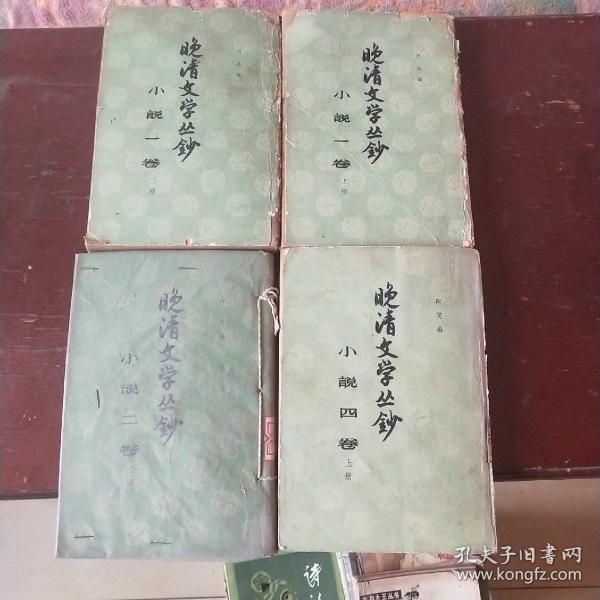 阿英编
晚清文学丛鈔
小說一卷
下册
阿英编
晚清文学丛鈔
小說一卷
上册
晚清文学丛鈔
小說二卷
阿英编
晚清文学丛鈔
小說四卷
上册
诗
孔夫子旧书网
www.kongfz.com